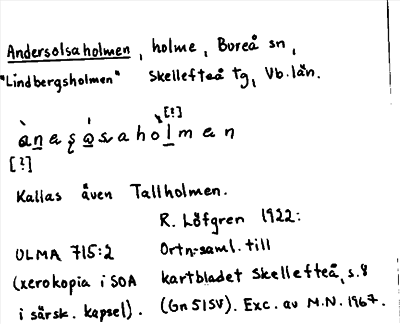 Andersolsaholmen, holme, Bureå sn,
"Lindbergsholmen" Skellefteå tg, Vb. län.
[?]
anesəsaholmen
[?]
Kallas även Tallholmen.
R. Löfgren 1922:
ULMA 715:2 Ortn:saml. till
(xerokopia i SOA kartbladet Skellefteå, s. 8
i särsk. kapsel). (Gn 51SV). Exc. av M.N. 1967.